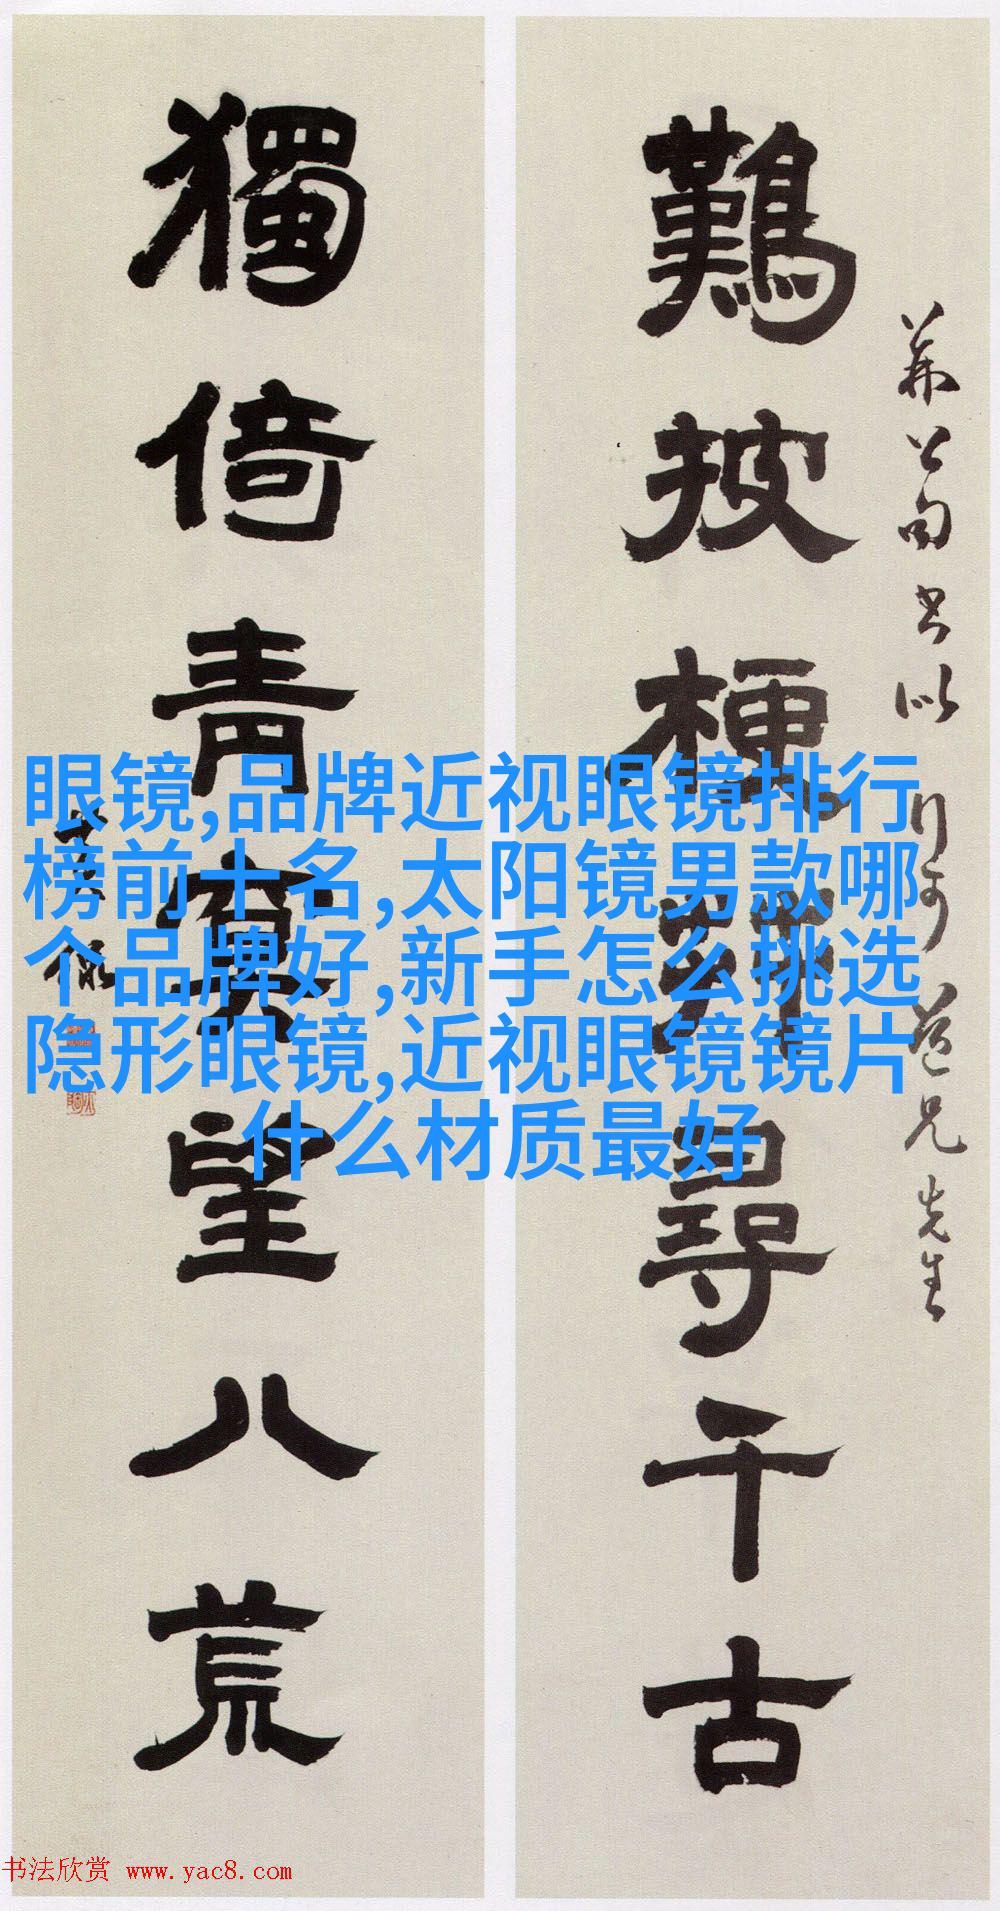 兄先生
難披梗尋千古
獨倚青冥望八荒
眼镜,品牌近视眼镜排行
榜前十名,太阳镜男款哪
个品牌好,新手怎么挑选
隐形眼镜,近视眼镜镜片
什么材质最好
书法欣赏 www.yac8.com